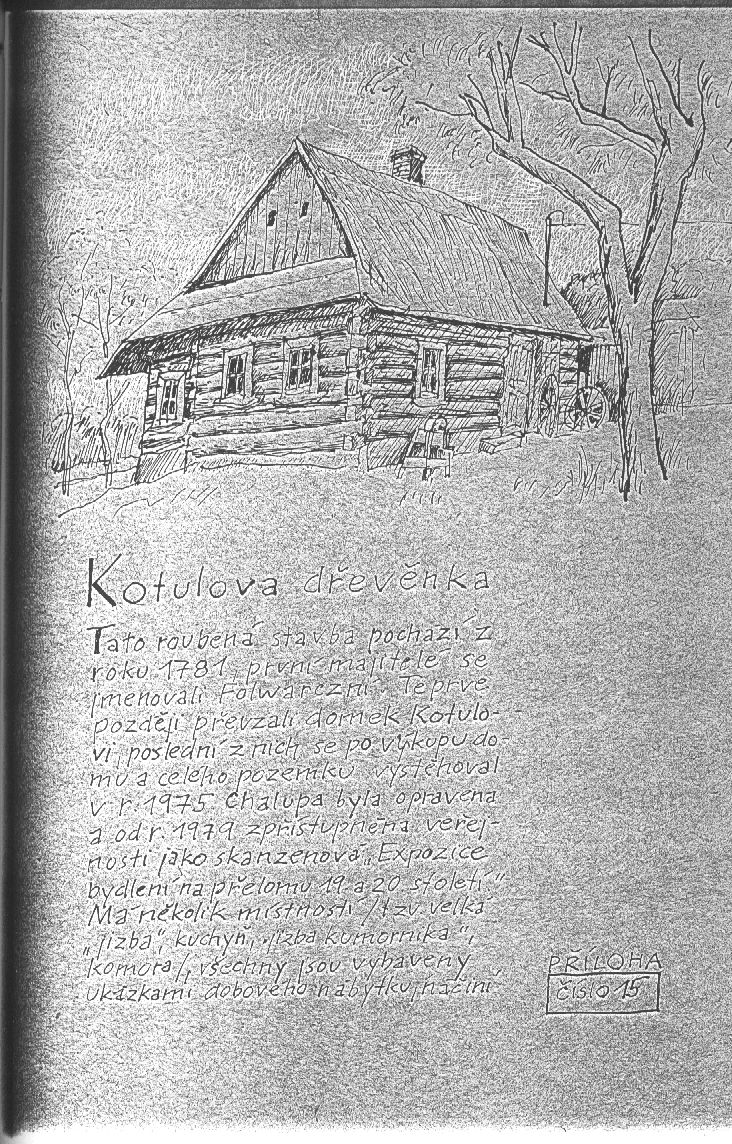 Kotulova dřevěnka
Tato roubená stavba pochází z
roku 1781, první majitelé se
jmenovali Folwarczní. Teprve
později převzali domek Kotulo-
vi, poslední z nich se po výkupu do-
mu a celého pozemku vystěhoval
v r. 1975. Chalupa byla opravena
a od r. 1979 zpřístupněna veřej-
nosti jako skanzenová „Expozice
bydlení na přelomu 19. a 20. století“
Má několik místností /tzv. velká
„jizba“, kuchyň, „jizba komorníka“,
komora/, všechny jsou vybaveny
ukázkami dobového nábytku, náčiní
PŘÍLOHA
číslo 15